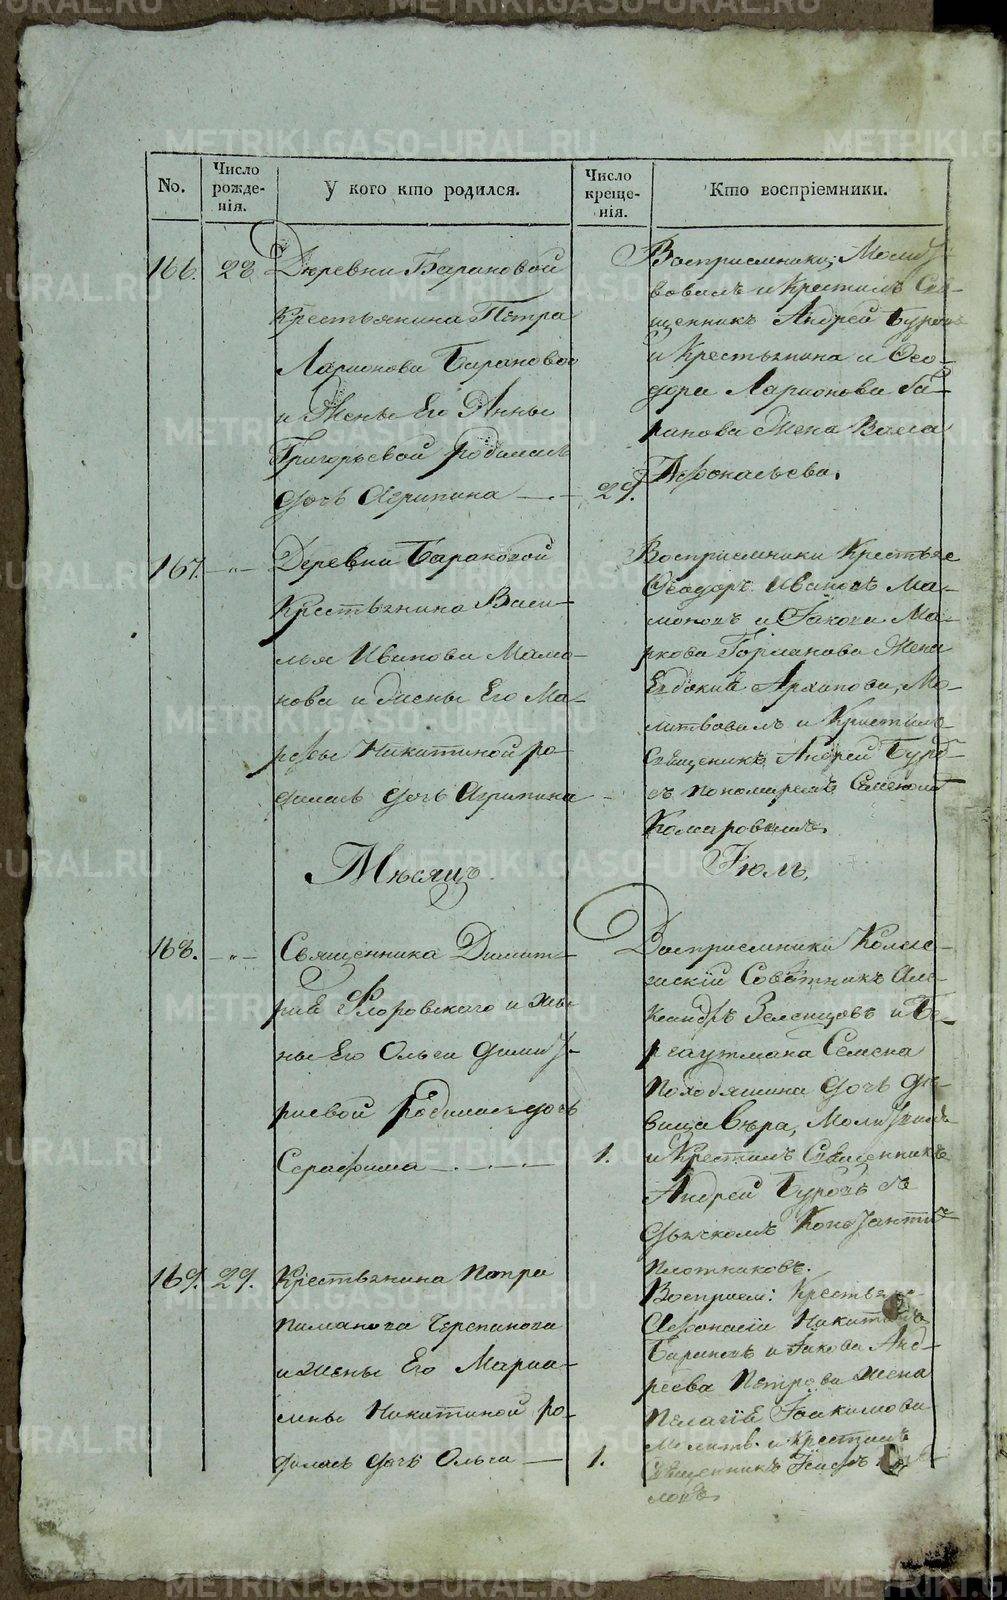 No.
Число рожде-
нія.
У кого кто родился.
Число креще-
нія.
Кто воспріемники.
166. 28. Деревни Барановой
Крестьянина Петра
Ларионова Баранова
и Жены Его Анны
Григорьевой родилась
дочь Агрипина 29.
Восприемники; Молит
вовалъ и Крестилъ Свя-
щенникъ Андрей Буровъ
и Крестьянина Ѳео-
дора Ларионова Ба-
ранова Жена Васса
Афонасьева.
167. -„- Деревни Барановой
Крестьянина Васи-
лья Иванова Мамо-
нова и жены Его Ма-
рфы Никитиной ро-
дилась дочь Агрипина -
Восприемники Крестьяне
Ѳеодоръ Ивановъ Ма-
моновъ и Іакова Ма-
ркова Жена
Евдокия Архипова, Мо-
литвовалъ и Крестилъ
Священникъ Андрей Буров
съ пономаремъ Семеномъ
Комаровымъ.
Мѣсяцъ Іюль.
168. -„- Священника Димит-
рия Флоровского и Же-
ны Его Ольги Димит-
риевой родилась дочь
Серафима 1.
Восприемники Колеж-
ский Советникъ Але-
ксандръ Зеленцовъ и Бе-
ргаутмана Семена
Походяшина дочь дѣ-
вица Вѣра, Молитвилъ
и Крестилъ Священникъ
Андрей Буровъ съ
дьячкомъ Констант
Плотниковъ.
169. 29. Крестьянина Петра
Черепанова
и Жены Его Мариа-
мны Никитиной ро-
дилась дочь Ольга 1.
Восприем: Крестьяне
Афонасій Никитинъ
Барановъ и Іакова Анд-
реева Петрова Жена
Пелагія Іоакимова
Молитв. и Крестилъ
Священникъ
METRIKI.GASO-URAL.RU